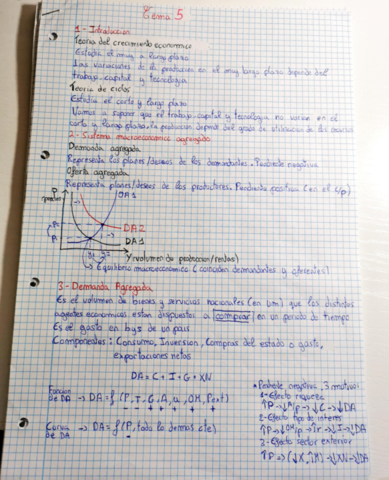 Tema 5
1- Introducción
Teoria del crecimiento economico
Estudia el muy a largo plazo
Las variaciones de la producción en el muy largo plazo depende del
trabajo, capital y tecnologia
Teoria de ciclos
Estudia el corto y largo plazo
Vamos a suponer que el trabajo, capital y tecnologia no varian en el
corto y largo plazo, la producción depende del grado de utilización de los recursos
2- Sistema macroeconomico agregado
Demanda agregada
Representa los planes/deseos de los demandantes. Pendiente negativa
Oferta agregada
Representa planes/deseos de los productores. Pendiente positiva (en el c/p)
P
OA1
DA2
DA1
Y (volumen de produccion/rentas)
Equilibrio macroeconomico (coinciden demandantes y oferentes)
3- Demanda Agregada
Es el volumen de bienes y servicios nacionales (en um) que los distintos
agentes economicos estan dispuestos a comprar en un periodo de tiempo
Es el gasto en bys de un pais
Componentes: Consumo, Inversion, Compras del estado o gasto,
exportaciones netas
DA = C + I + G + XN
* Pendiente negativa, 3 motivos:
1- Efecto riqueza
Función
de DA → DA = f (P, T, G, A, u, OM, Pext)
2- Efecto tipo de interes
3- Efecto sector exterior
Curva
de DA → DA = f (P, todo lo demas cte)
↑P → (↓X, ↑M) → ↓XN → ↓DA